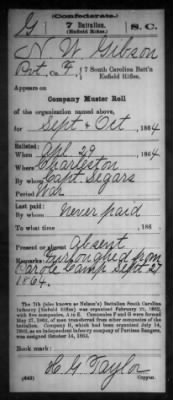 (Confederate.)
G 7 Battalion, S.C.
(Enfield Rifles.)
N W Gibson
Pvt, Co. F, 7 South Carolina Batt'n
Enfield Rifles.
Appears on
Company Muster Roll
of the organization named above,
for Sept & Oct, 1864
Enlisted:
When Apl 29, 1864
Where Charleston
By whom Capt. Segars
Period War
Last paid:
By whom Never paid
To what time , 186
Present or absent Absent
Remarks: Furloughed from
Parole Camp Sept 27
1864.
The 7th (also known as Nelson's) Battalion South Carolina
Infantry (Enfield Rifles) was organized February 22, 1862,
with five companies, A to E. Companies F and G were formed
May 27, 1862, of men transferred from other companies of
the battalion. Company H, which had been organized July 14,
1862, as an independent company of Partisan Rangers,
was assigned October 24, 1863.
Book mark:
H. G. Taylor
(642) Copyist.